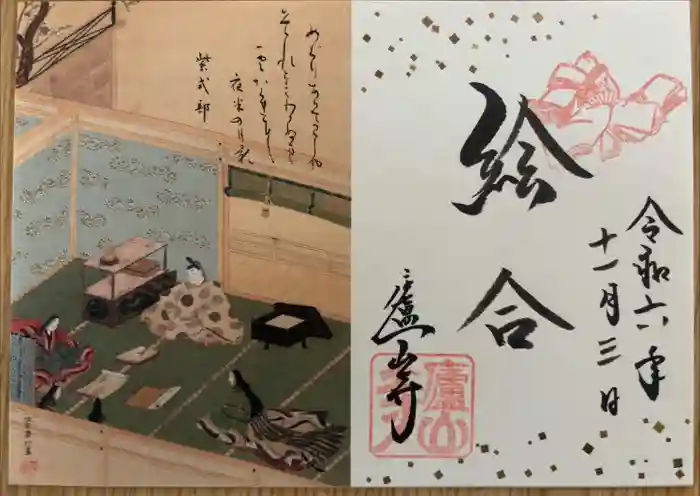 令和六年
十一月三日
絵合
廬山寺
廬山寺
めぐりあひて見しや
それともわかぬまに
雲がくれにし
夜半の月影
紫式部